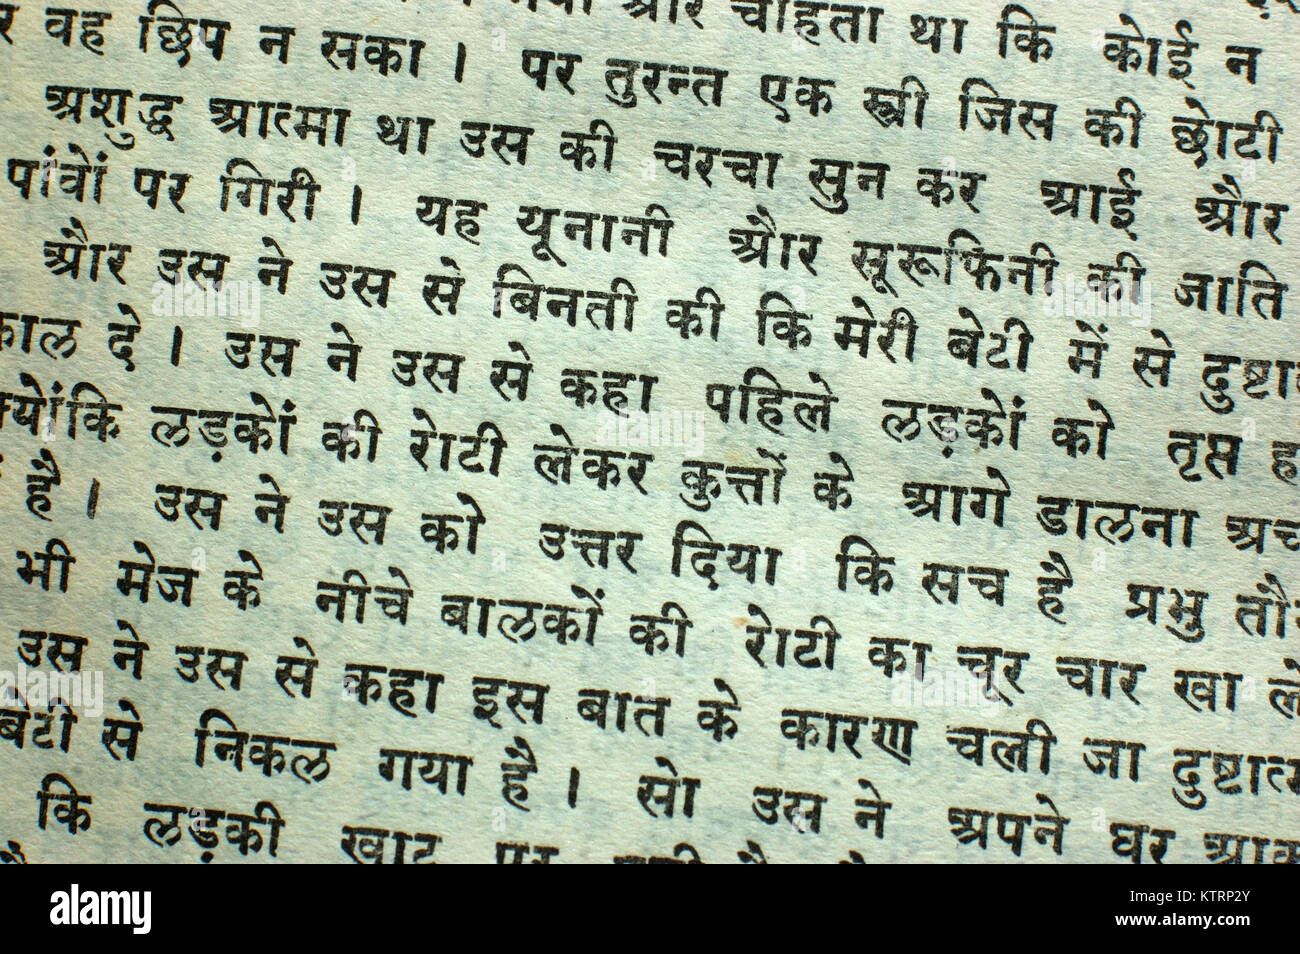 और चाहता था कि कोई न
वह छिप न सका । पर तुरन्त एक स्त्री जिस की छोटी
अशुद्ध आत्मा था उस की चरचा सुन कर आई और
पांवों पर गिरी । यह यूनानी और सूरूफिनी की जाति
और उस ने उस से बिनती की कि मेरी बेटी में से
दे । उस ने उस से कहा पहिले लड़कों को तृप्त
क्योंकि लड़कों की रोटी लेकर कुत्तों के आगे डालना
है । उस ने उस को उत्तर दिया कि सच है प्रभु
भी मेज के नीचे बालकों की रोटी का चूर चार खा
उस ने उस से कहा इस बात के कारण चली जा
बेटी से निकल गया है । सो उस ने अपने घर
कि लड़की खाट पर
alamy
Image ID: KTRP2Y
www.alamy.com